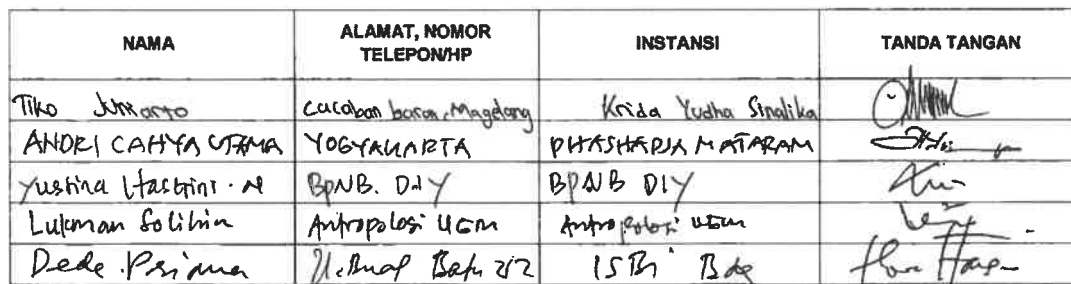 NAMA ALAMAT, NOMOR TELEPON/HP INSTANSI TANDA TANGAN
Tiko Juniarto Cacaban barat, Magelang Krida Yudha Sinalika
ANDRI CAHYA UTAMA YOGYAKARTA MATARAM
Yustina Hastrini . N BPNB. DIY BPNB DIY
Lukman Solihin Antropologi UGM Antropologi UGM
Dede Priana Jl. Buah Batu 212 ISBI Bdg